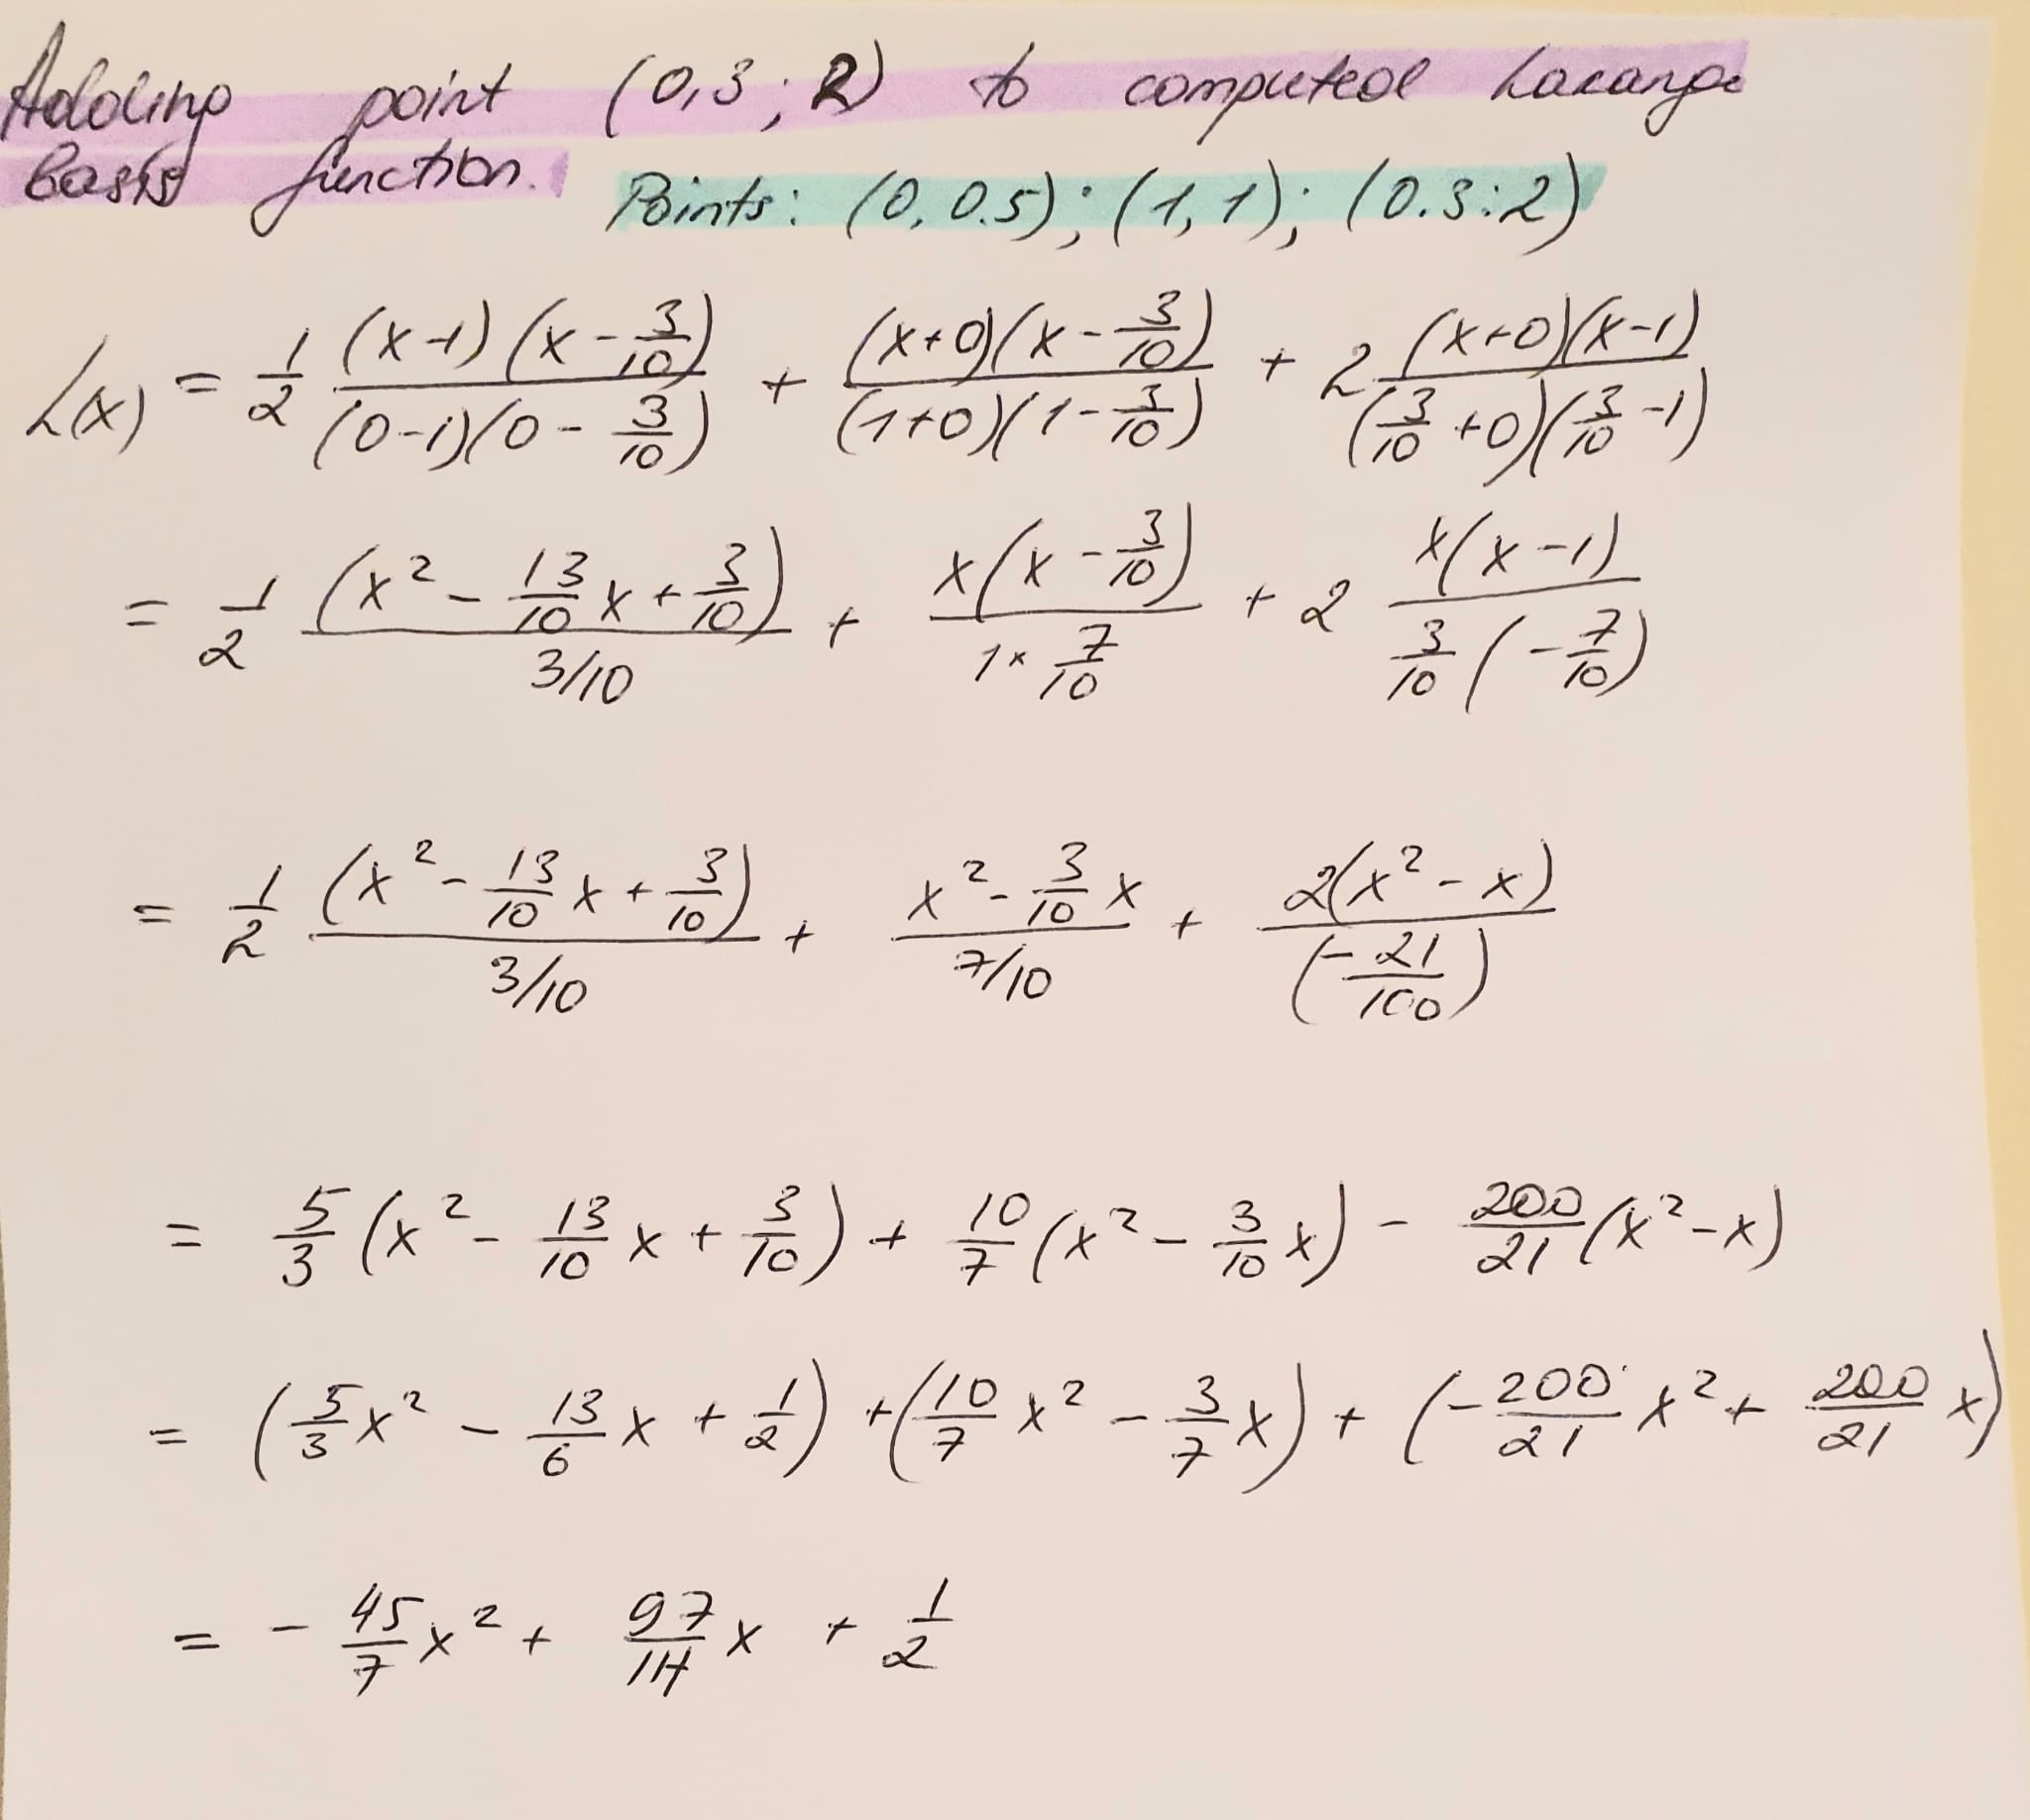 Adding point (0,3 ; 2) to computed Lagrange
basis function. Points: (0, 0.5) ; (1, 1) ; (0.3 : 2)
L(x) = 1/2 (x-1)(x - 3/10) / (0-1)(0 - 3/10) + (x+0)(x - 3/10) / (1+0)(1 - 3/10) + 2 (x+0)(x-1) / (3/10 +0)(3/10 -1)
= 1/2 (x² - 13/10 x + 3/10) / 3/10 + x(x - 3/10) / 1 × 7/10 + 2 x(x-1) / 3/10 (- 7/10)
= 1/2 (x² - 13/10 x + 3/10) / 3/10 + x² - 3/10 x / 7/10 + 2(x² - x) / (- 21/100)
= 5/3 (x² - 13/10 x + 3/10) + 10/7 (x² - 3/10 x) - 200/21 (x² - x)
= (5/3 x² - 13/6 x + 1/2) + (10/7 x² - 3/7 x) + (- 200/21 x² + 200/21 x)
= - 45/7 x² + 97/14 x + 1/2